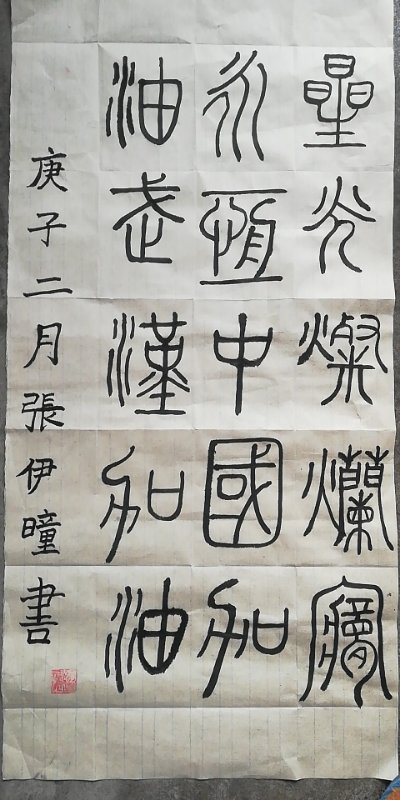 星光燦爛夢
永恆中國加
油武漢加油
庚子二月張伊曈書